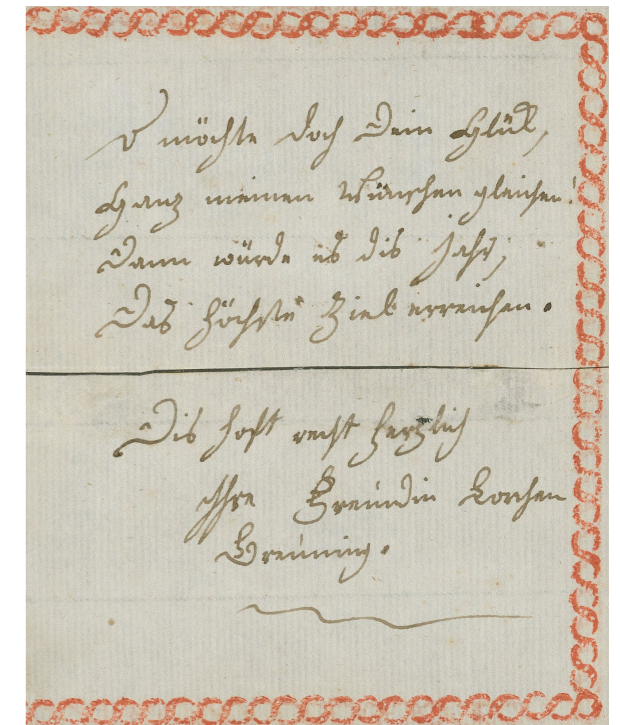 O möchte doch Dein Glük,
Ganz meinen Wünschen gleichen!
Dann würde es dis Jahr,
Das höchste Ziel erreichen.
Dis hoft recht herzlich
ihre Freündin Lorchen
Breüning.